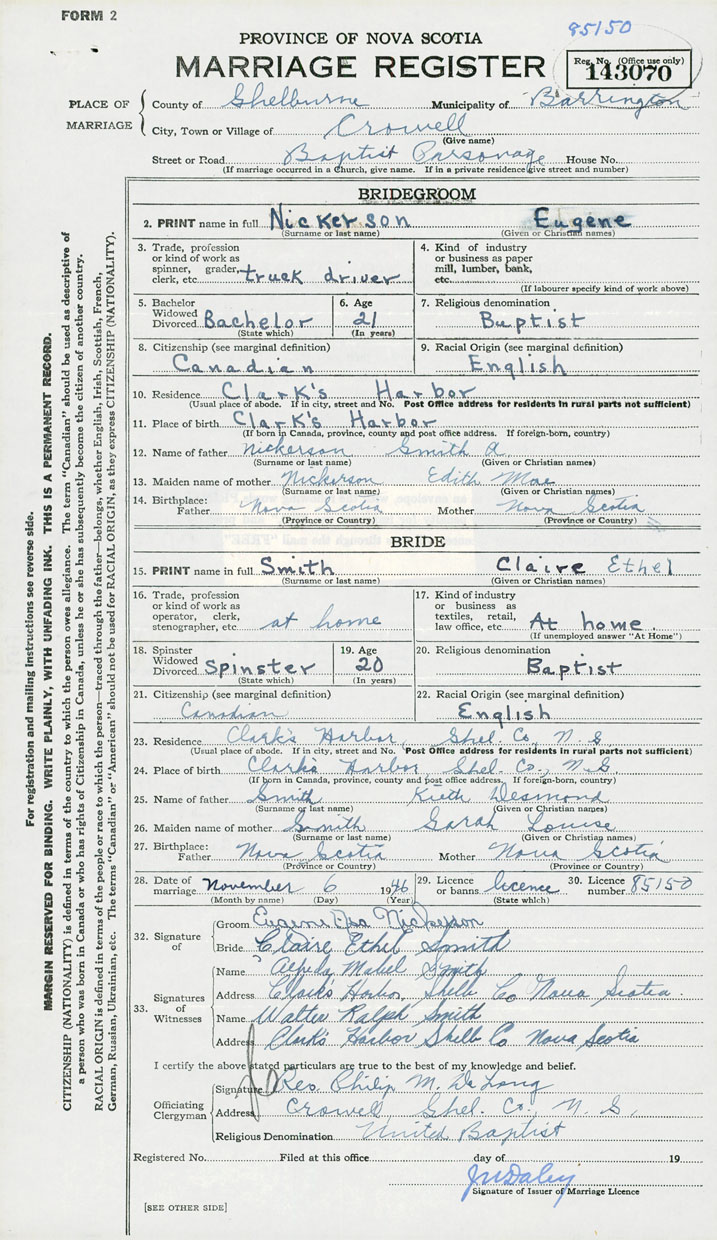 FORM 2
85150
PROVINCE OF NOVA SCOTIA
MARRIAGE REGISTER
Reg. No. (Office use only)
143070
PLACE OF MARRIAGE
County of Shelburne Municipality of Barrington
City, Town or Village of Crowell
(Give name)
Street or Road Baptist Parsonage House No.
(If marriage occurred in a Church, give name. If in a private residence give street and number)
BRIDEGROOM
2. PRINT name in full Nickerson Eugene
(Surname or last name) (Given or Christian names)
3. Trade, profession or kind of work as spinner, grader, clerk, etc. truck driver
4. Kind of industry or business as paper mill, lumber, bank, etc.
(If labourer specify kind of work above)
5. Bachelor Widowed Divorced Bachelor (State which)
6. Age 21 (In years)
7. Religious denomination Baptist
8. Citizenship (see marginal definition) Canadian
9. Racial Origin (see marginal definition) English
10. Residence Clark's Harbor
(Usual place of abode. If in city, street and No. Post Office address for residents in rural parts not sufficient)
11. Place of birth Clark's Harbor
(If born in Canada, province, county and post office address. If foreign-born, country)
12. Name of father Nickerson Smith A
(Surname or last name) (Given or Christian names)
13. Maiden name of mother Nickerson Edith Mae
(Surname or last name) (Given or Christian names)
14. Birthplace: Father Nova Scotia Mother Nova Scotia
(Province or Country) (Province or Country)
BRIDE
15. PRINT name in full Smith Claire Ethel
(Surname or last name) (Given or Christian names)
16. Trade, profession or kind of work as operator, clerk, stenographer, etc. at home
17. Kind of industry or business as textiles, retail, law office, etc. At home
(If unemployed answer "At Home")
18. Spinster Widowed Divorced Spinster (State which)
19. Age 20 (In years)
20. Religious denomination Baptist
21. Citizenship (see marginal definition) Canadian
22. Racial Origin (see marginal definition) English
23. Residence Clark's Harbor, Shel. Co, N. S
(Usual place of abode. If in city, street and No. Post Office address for residents in rural parts not sufficient)
24. Place of birth Clark's Harbor Shel Co., N.S.
(If born in Canada, province, county and post office address. If foreign-born, country)
25. Name of father Smith Kieth Desmond
(Surname or last name) (Given or Christian names)
26. Maiden name of mother Smith Sarah Louise
(Surname or last name) (Given or Christian names)
27. Birthplace: Father Nova Scotia Mother Nova Scotia
(Province or Country) (Province or Country)
28. Date of marriage November 6 1946
(Month by name) (Day) (Year)
29. Licence or banns licence (State which)
30. Licence number 85150
32. Signature of
Groom Eugene Nickerson
Bride Claire Ethel Smith
33. Signatures of Witnesses
Name Mabel Smith
Address Clark's Harbor, Shelb Co Nova Scotia.
Name Walter Ralph Smith
Address Clark's Harbor Shelb Co Nova Scotia
I certify the above stated particulars are true to the best of my knowledge and belief.
Officiating Clergyman
Signature Rev. Philip M. De Long
Address Crowell Shel. Co., N. S.
Religious Denomination United Baptist
Registered No. Filed at this office day of 19
Signature of Issuer of Marriage Licence
[SEE OTHER SIDE]
For registration and mailing instructions see reverse side.
MARGIN RESERVED FOR BINDING. WRITE PLAINLY, WITH UNFADING INK. THIS IS A PERMANENT RECORD.
CITIZENSHIP (NATIONALITY) is defined in terms of the country to which the person owes allegiance. The term "Canadian" should be used as descriptive of
a person who was born in Canada or who has rights of Citizenship in Canada, unless he or she has subsequently become the citizen of another country.
RACIAL ORIGIN is defined in terms of the people or race to which the person—traced through the father—belongs, whether English, Irish, Scottish, French,
German, Russian, Ukrainian, etc. The terms "Canadian" or "American" should not be used for RACIAL ORIGIN, as they express CITIZENSHIP (NATIONALITY).